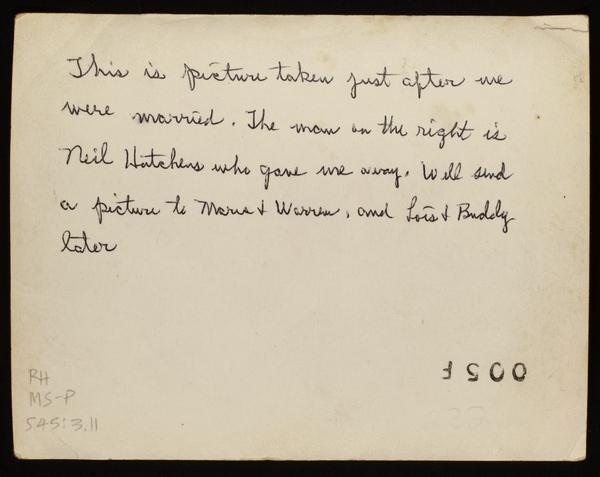 This is picture taken just after we
were married. The man on the right is
Neil Hotchens who gave me away. Will send
a picture to Marie & Warren, and Lois & Buddy
later
005 F
RH
MS-P
S45:3.11